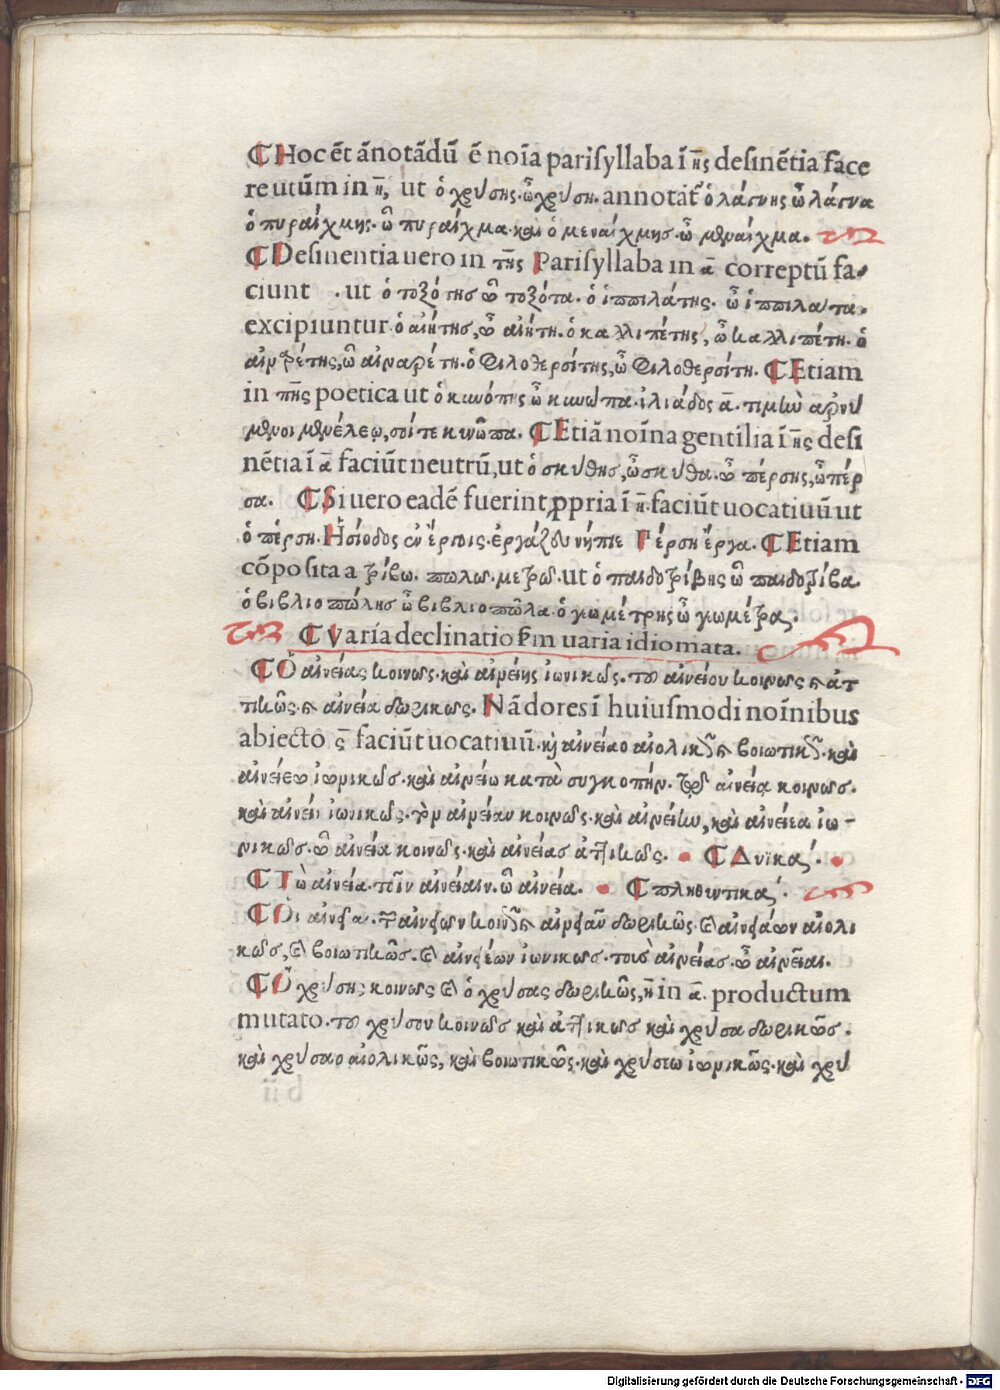 ¶ Hoc ēt ānotādū ē noīa pariſyllaba ī ης deſinētia face
re utūm in η, ut ὁ χρύσης. ὦ χρύση. annotāt ὁ λάσνης ὦ λάσνα
ὁ πυραίχμης. ὦ πυραίχμα. καὶ ὁ μεναίχμησ. ὦ μεναίχμα.
¶ Deſinentia uero in της Pariſyllaba in ᾱ correptū fa-
ciunt . ut ὁ τοξότησ ὦ τοξότα. ὁ ἱππιλάτης. ὦ ἱππιλάτα.
excipiuntur ὁ αἰήτησ, ὦ αἰήτη. ὁ καλλιπέτης, ὦ καλλιπέτη. ὁ
ὁ φιλοθερσίτης, ὦ φιλοθερσίτη. ¶ Etiam
in πης poetica ut ὁ κυνόπης ὦ κυνῶπα. ἰλιάδος ᾱ.
¶ Etiā noīna gentilia ī ης deſi
nētia ī ᾱ faciūt neutrū, ut ὁ σκύθησ, ὦ σκύθα. ὦ πέρσης, ὦ πέρ
σα. ¶ Si uero eadē fuerint ꝓpria ī η faciūt uocatiuū ut
ὁ πέρση. Ἡσίοδος ἐν ἔργοις. ἐργάζου νήπιε Πέρση ἔργα. ¶ Etiam
cōpoſita a τρίβω. πωλῶ. μετρῶ. ut ὁ παιδοτρίβης ὦ παιδοτρίβα.
ὁ βιβλιοπώλησ ὦ βιβλιοπῶλα. ὁ γεωμέτρης ὦ γεωμέτρας.
¶ Varia declinatio ẜm uaria idiomata.
¶ Ὁ αἰνείας κοινῶς. καὶ αἰνείης ἰωνικῶς. τοῦ αἰνείου κοινῶς καὶ ἀτ
τικῶς. καὶ αἰνεία δωρικῶς. Nā dores ī huiuſmodi noīnibus
abiecto ς faciūt uocatiuū. καὶ αἰνείαο αἰολικῶς καὶ βοιωτικῶς. καὶ
αἰνείεω ἰωνικῶς. καὶ αἰνείω κατὰ συγκοπήν. τῷ αἰνείᾳ κοινῶσ.
καὶ αἰνείῃ ἰωνικῶς. τὸν αἰνείαν κοινῶς. καὶ αἰνείην, καὶ αἰνείεα ἰω-
νικῶσ. ὦ αἰνεία κοινῶς. καὶ αἰνείασ ἀττικῶς. ¶ Δυϊκά.
¶ Τὼ αἰνεία. τοῖν αἰνείαιν. ὦ αἰνεία. ¶ πληθυντικά.
¶ Οἱ αἰνεῖαι. τῶν αἰνειῶν κοινῶς καὶ αἰνειᾶν δωρικῶς. καὶ αἰνειάων αἰολι
κῶσ, καὶ βοιωτικῶσ. καὶ αἰνειέων ἰωνικῶσ. τοὺσ αἰνείασ. ὦ αἰνεῖαι.
¶ Ὁ χρύσης κοινῶς καὶ ὁ χρύσας δωρικῶς, η in ᾱ. productum
mutato. τοῦ χρύσου κοινῶσ καὶ ἀττικῶσ καὶ χρύσα δωρικῶσ.
καὶ χρύσαο αἰολικῶς, καὶ βοιωτικῶς. καὶ χρύσεω ἰωνικῶς. καὶ χρύ